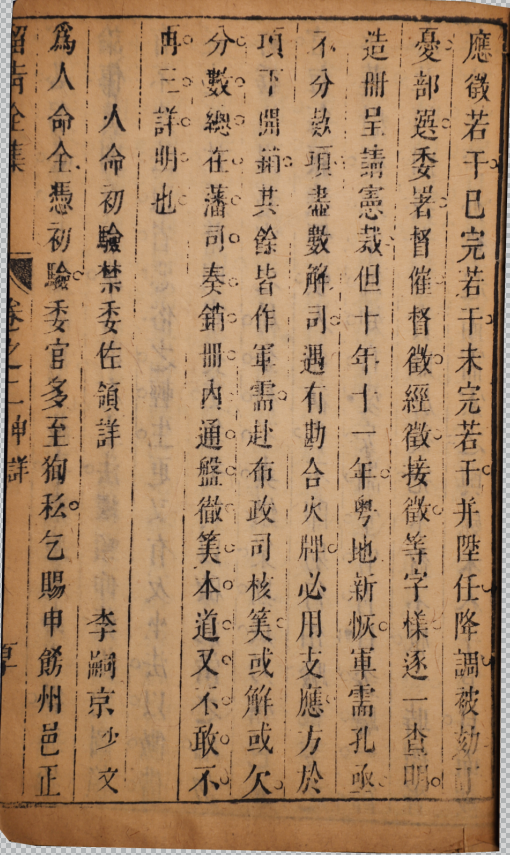 應徵若干已完若干未完若干并陞任降調被劾丁
憂部選委署督催督徵經徵接徵等字樣逐一查明
造冊呈請憲裁但十年十一年粤地新恢軍需孔亟
不分款項盡數解司遇有勘合火牌必用支應方於
項下開銷其餘皆作軍需赴布政司核筭或解或欠
分數總在藩司奏銷冊內通盤徹筭本道又不敢不
再三詳明也
人命初驗禁委佐領詳 李嗣京少文
爲人命全憑初驗委官多至狥私乞賜申飭州邑正
全集 卷之二申詳